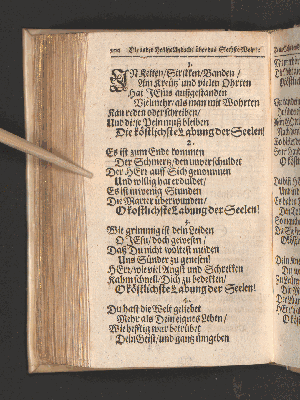 1.
IN Ketten/ Strikken/ Banden/
Am Kreütz und vielen Ohrten
Hat JEsus ausgestanden
Vielmehr als man mit Wohrten
Kan reden oder schreiben/
Und diese Pein muß bleiben
Die köstlichste Labung der Seelen!
2.
Es ist zum Ende kommen
Der Schmertz/ den unverschuldet
Der HErr auff Sich genommen
Und willig hat erduldet/
Es ist in wenig Stunden
Die Marter überwunden/
O köstlichste Labung der Seelen!
3.
Wie grimmig ist dein Leiden
O JEsu/ doch gewesen/
Daß Du nicht woltest meiden
Uns Sünder zu genesen!
HErr/ wie viel Angst und Schrikken
Kahm schnell/ Dich zu bedekken/
O köstlichste Labung der Seelen!
4.
Du hast die Welt geliebet
Mehr als Dein eignes Leben/
Wie hefftig war betrübet
Dein Geist/ und gantz ümgeben